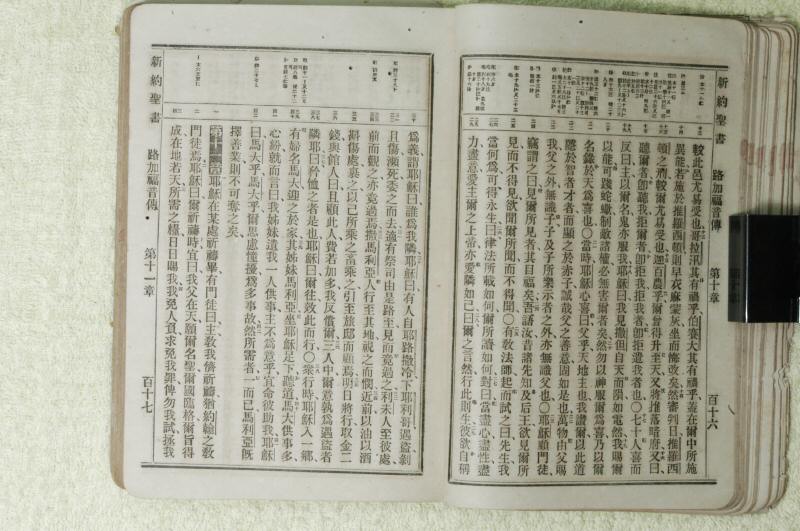 新約聖書 路加福音傳 第十章 百十六
較此邑尤易受也哥拉汛其有禍乎伯賽大其有禍乎蓋在爾中所施
異能若施於推羅西頓則早衣麻蒙灰坐而悔改矣然審判日推羅西
頓之刑較爾尤易受也迦百農乎爾曾得升至天又將推落陰府又曰
聽爾者卽聽我拒爾者卽拒我拒我者卽拒遣我者也〇七十人喜而
反曰主以爾名鬼亦服我耶穌曰我見撒但自天而隕如電然我賜爾
以能可踐蛇蠍制敵諸權必無害爾者矣然勿以神服爾爲喜乃以爾
名錄於天爲喜也〇當時耶穌心喜曰父乎天地主也我讚爾以此道
隱於智者才者而顯之於赤子誠哉父之善意固如是也萬物由父賜
我父之外無識子子及子所樂示者之外亦無識父也〇耶穌顧門徒
竊謂之曰見爾所見者其目福矣吾語汝昔諸先知及后王欲見爾所
見而不得見欲聞爾所聞而不得聞〇有敎法師起而試之曰先生我
當何爲可得永生曰律法所載如何爾所讀如何對曰當盡心盡性盡
力盡意愛主爾之上帝亦愛隣如己曰爾之言然行此則生彼欲自稱
爲義謂耶穌曰誰爲我隣耶穌曰有人自耶路撒冷下耶利哥遇盜剝
且傷瀕死委之而去適有祭司由是路至見而竟過之利未人至彼處
前而觀之亦竟過焉撒馬利亞人行至其地視之而憫近前以油以酒
斟傷處裹之以己所乘之畜乘之引至旅邸而顧焉明日將行取金二
錢與館人曰且顧此人費若加多我反償爾三人中爾意孰爲遇盜者
隣耶曰矜恤之者是也耶穌曰爾往效此而行〇衆行時耶穌入一鄉
有婦名馬大迎之於家其姊妹馬利亞坐耶穌足下聽道馬大供事多
心紛就而言曰我姊妹遺我一人供事主不爲意乎宜命彼助我耶穌
曰馬大乎馬大乎爾思慮憧擾爲多事故然所需者一而已馬利亞旣
擇善業則不可奪之矣
第十一章 耶穌在某處祈禱畢有門徒曰主敎我儕祈禱猶約翰之敎
門徒焉耶穌曰爾祈禱時宜曰我父在天願爾名聖爾國臨格爾旨得
成在地若天所需之糧日日賜我我免人負求免我罪俾勿我試拯我
新約聖書 路加福音傳 第十一章 百十七